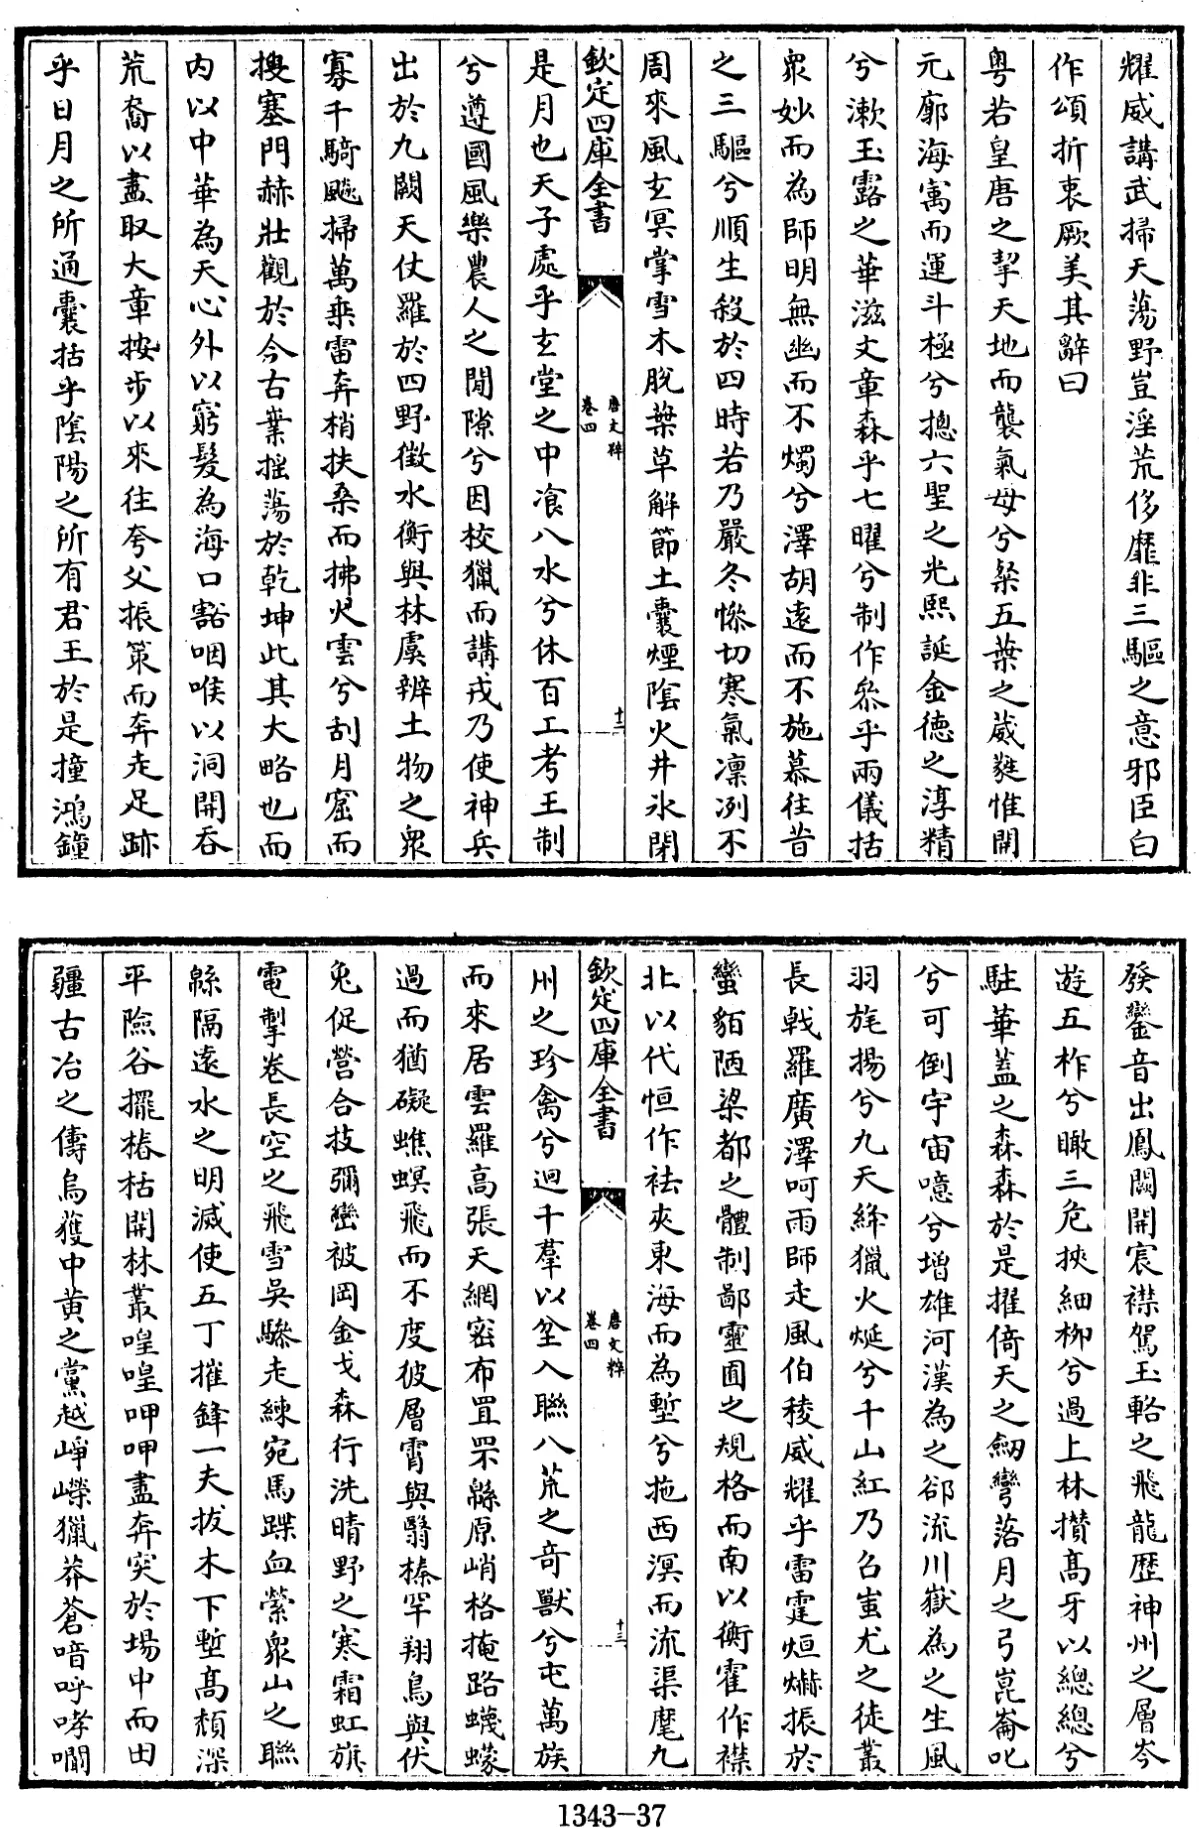 耀威講武掃天蕩野豈淫荒侈靡非三驅之意邪臣白
作頌折衷厥美其辭曰
粵若皇唐之挈天地而襲氣母兮粲五葉之葳蕤惟開
元廓海寓而運斗極兮摠六聖之光熙誕金德之淳精
兮漱玉露之華滋文章森乎七曜兮制作叅乎兩儀括
衆妙而為師明無幽而不燭兮澤胡逺而不施慕往昔
之三驅兮順生殺於四時若乃嚴冬慘切寒氣凛冽不
周來風玄冥掌雪木脫葉草解節土囊煙隂火井氷閉
欽定四庫全書
唐文粹
卷四
十二
是月也天子處乎玄堂之中飡八水兮休百工考王制
兮遵國風樂農人之閒隙兮因校獵而講戎乃使神兵
出於九闕天仗羅於四野徵水衡與林虞辨土物之衆
寡千騎飈掃萬乘雷奔梢扶桑而拂火雲兮刮月窟而
搜塞門赫壯觀於今古業揺蕩於乾坤此其大略也而
内以中華為天心外以窮髮為海口豁咽喉以洞開吞
荒裔以盡取大章按步以來往夸父振策而奔走足跡
乎日月之所通囊括乎隂陽之所有君王於是撞鴻鐘
發鑾音出鳳闕開宸襟駕玉輅之飛龍歴神州之層岑
遊五柞兮瞰三危挾細柳兮過上林攅髙牙以總總兮
駐華蓋之森森於是擢倚天之劒彎落月之弓崑崙叱
兮可倒宇宙噫兮增雄河漢為之郤流川嶽為之生風
羽旄揚兮九天絳獵火㷼兮千山紅乃召蚩尤之徒叢
長㦸羅廣澤呵雨師走風伯稜威耀乎雷霆烜爀振於
蠻貊陋梁都之體制鄙靈囿之規格而南以衡霍作襟
北以代恒作袪夾東海而為塹兮拖西溟而流渠麾九
欽定四庫全書
唐文粹
卷四
十三
州之珍禽兮迴千羣以坌入聯八荒之竒獸兮屯萬族
而來居雲羅高張天網宻布罝罘緜原峭格掩路蠛蠓
過而猶礙蟭螟飛而不度彼層霄與翳榛罕翔鳥與伏
兔促營合技彌巒被岡金戈森行洗晴野之寒霜虹旗
電掣卷長空之飛雪吳驂走練宛馬蹀血縈衆山之聯
緜隔逺水之明滅使五丁摧鋒一夫拔木下塹髙頹深
平險谷擺樁枯開林叢喤喤呷呷盡奔突於場中而田
疆古冶之儔烏獲中黄之黨越崢嶸獵莽蒼喑呼哮㘚